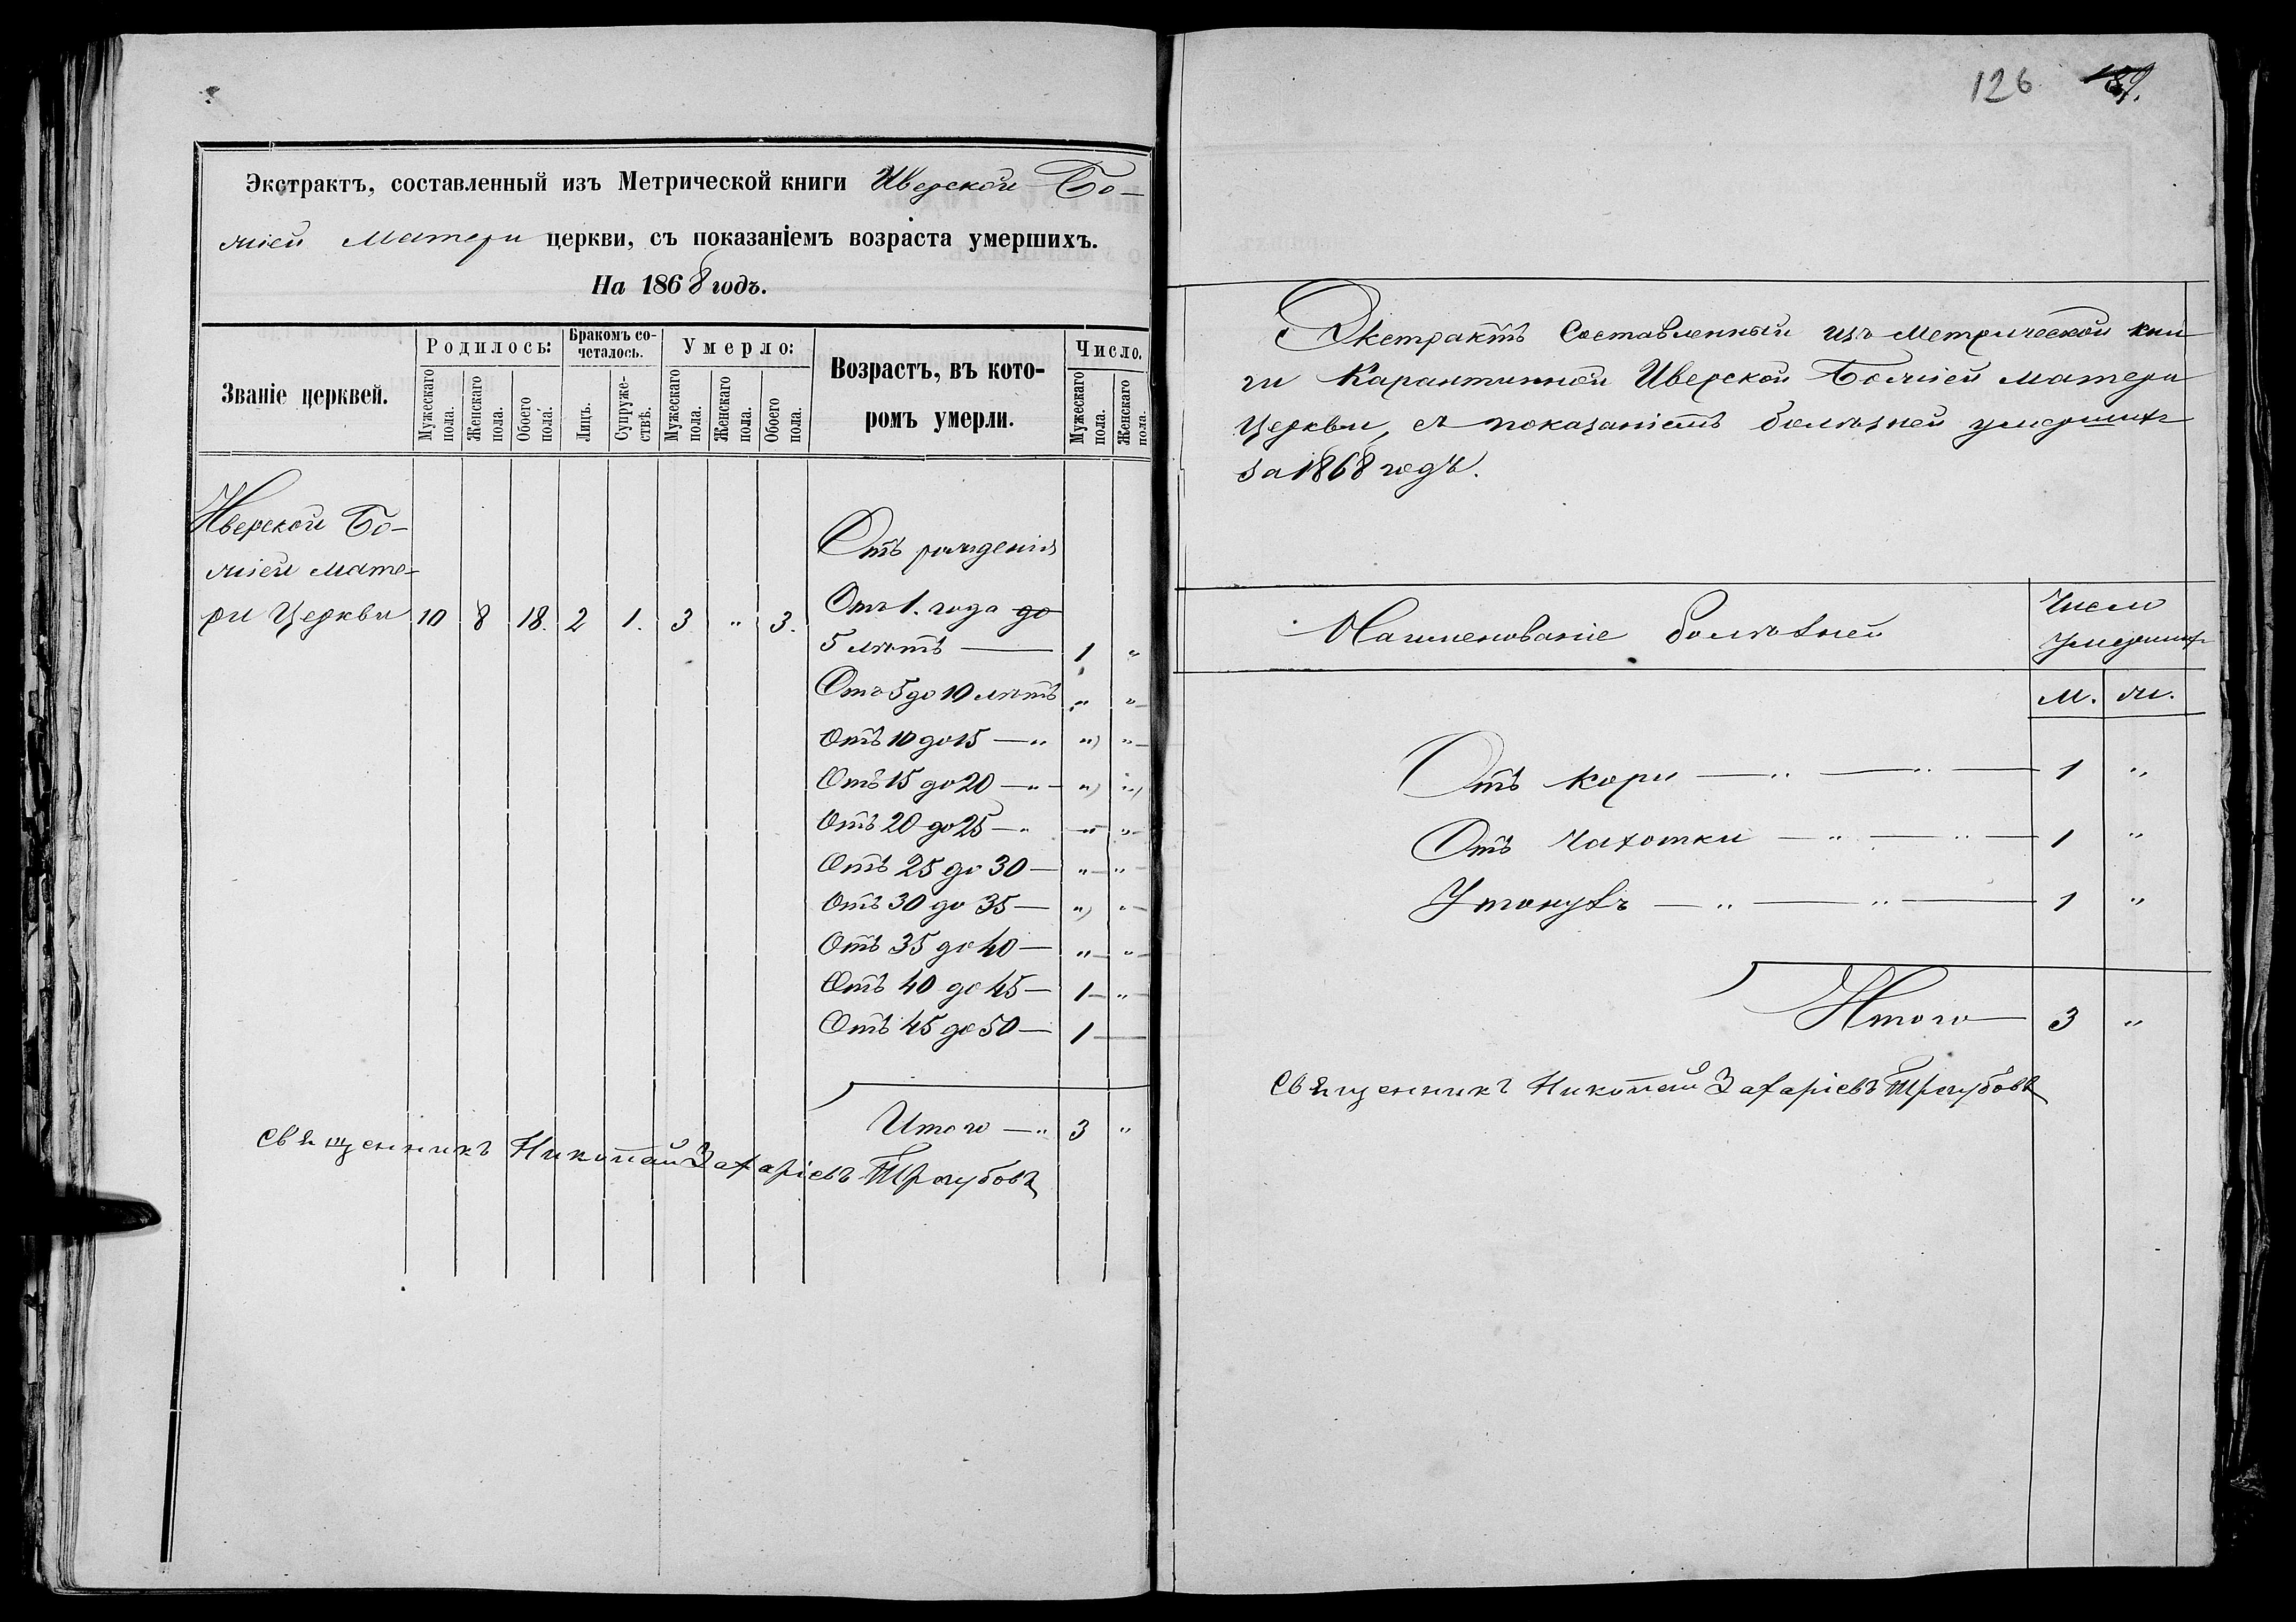 Экстрактъ, составленный изъ Метрической книги Иверской Бо-
жіей Матери церкви, съ показаніемъ возраста умершихъ.
На 1868 годъ.
Званіе церквей.
Родилось:
Мужескаго пола.
Женскаго пола.
Обоего пола.
Бракомъ со-
четалось.
Лицъ.
Супруже-
ствъ.
Умерло:
Мужескаго пола.
Женскаго пола.
Обоего пола.
Возрастъ, въ кото-
ромъ умерли.
Число.
Мужескаго пола.
Женскаго пола.
Иверской Бо-
жіей Мате-
ри Церкви 10 8 18. 2 1. 3 " 3.
Отъ рожденія
Отъ 1. года до
5 лѣтъ — 1 "
Отъ 5 до 10 лѣтъ " "
Отъ 10 до 15 — " " "
Отъ 15 до 20 — " " "
Отъ 20 до 25 — " " "
Отъ 25 до 30 — " "
Отъ 30 до 35 — " "
Отъ 35 до 40 — " "
Отъ 40 до 45 — 1 "
Отъ 45 до 50 — 1 —
Итого — " 3 "
Священникъ Николай Захаріевъ
126 189.
Экстрактъ Составленный изъ Метрической кни
ги Карантинной Иверской Божіей Матери
Церкви, съ показаніемъ болѣзней умершихъ
за 1868 годъ.
Наименованіе болѣзней
Число
Умершихъ
М. ж.
Отъ кори — " — " — 1 "
Отъ чахотки — " — " — 1 "
Утонухъ — " — " — 1 "
Итого — 3 "
Священникъ Николай Захаріевъ